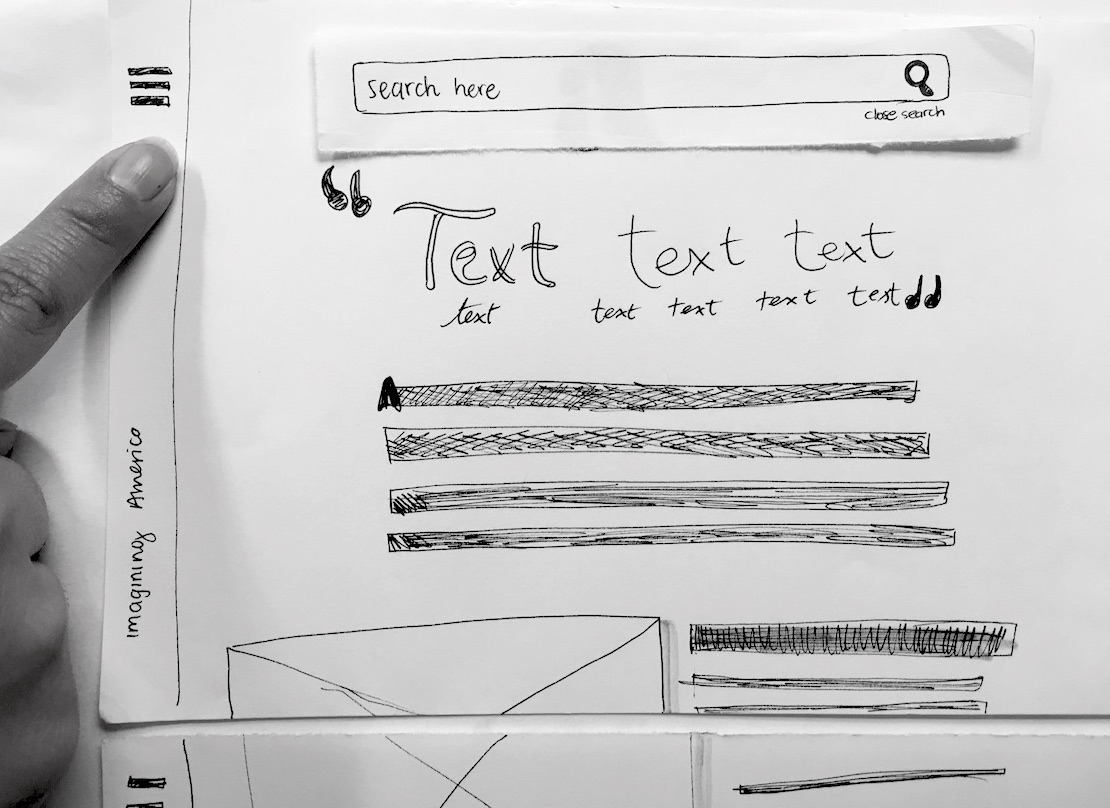 search here
close search
“ Text text text
text text text text text ”
Imagining America